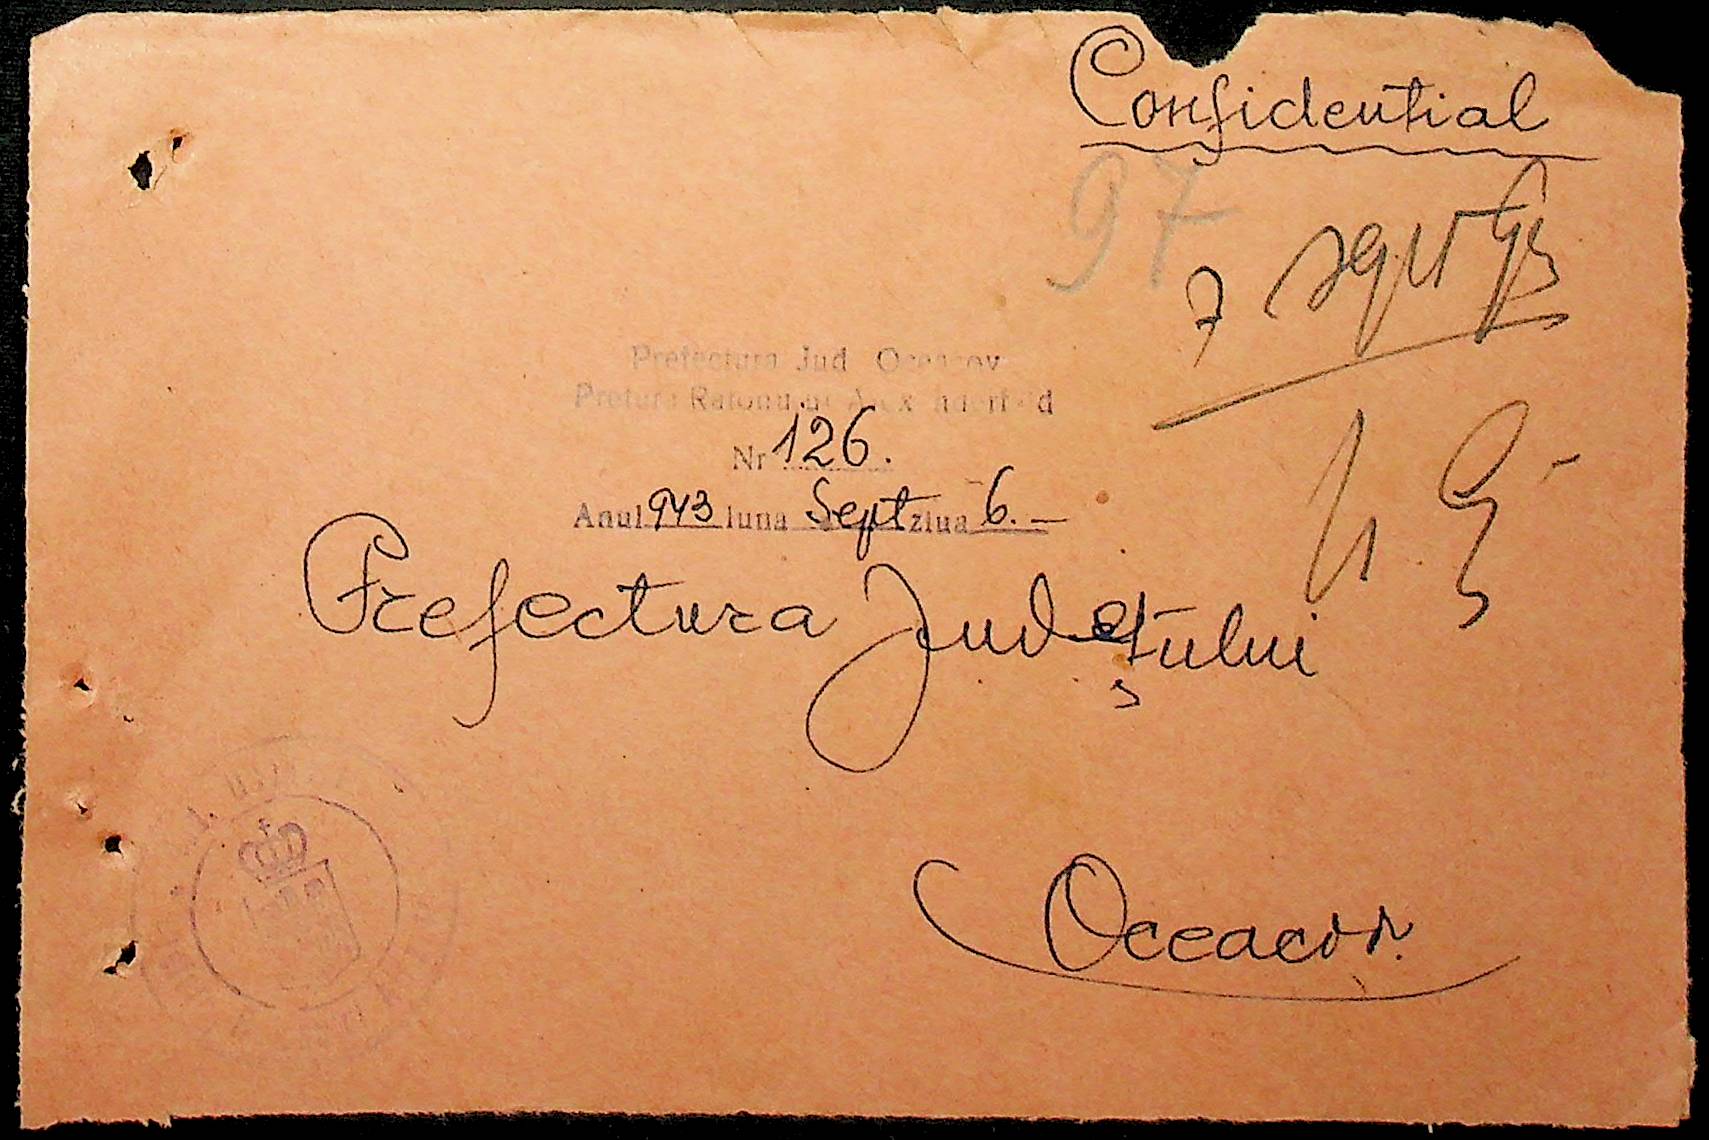 Confidențial
97
7
Prefectura Jud Oceacov
Pretura Raionului Alexanderfeld
Nr 126.
Anul 943 luna Sept ziua 6.—
Prefectura Județului
Oceacov.